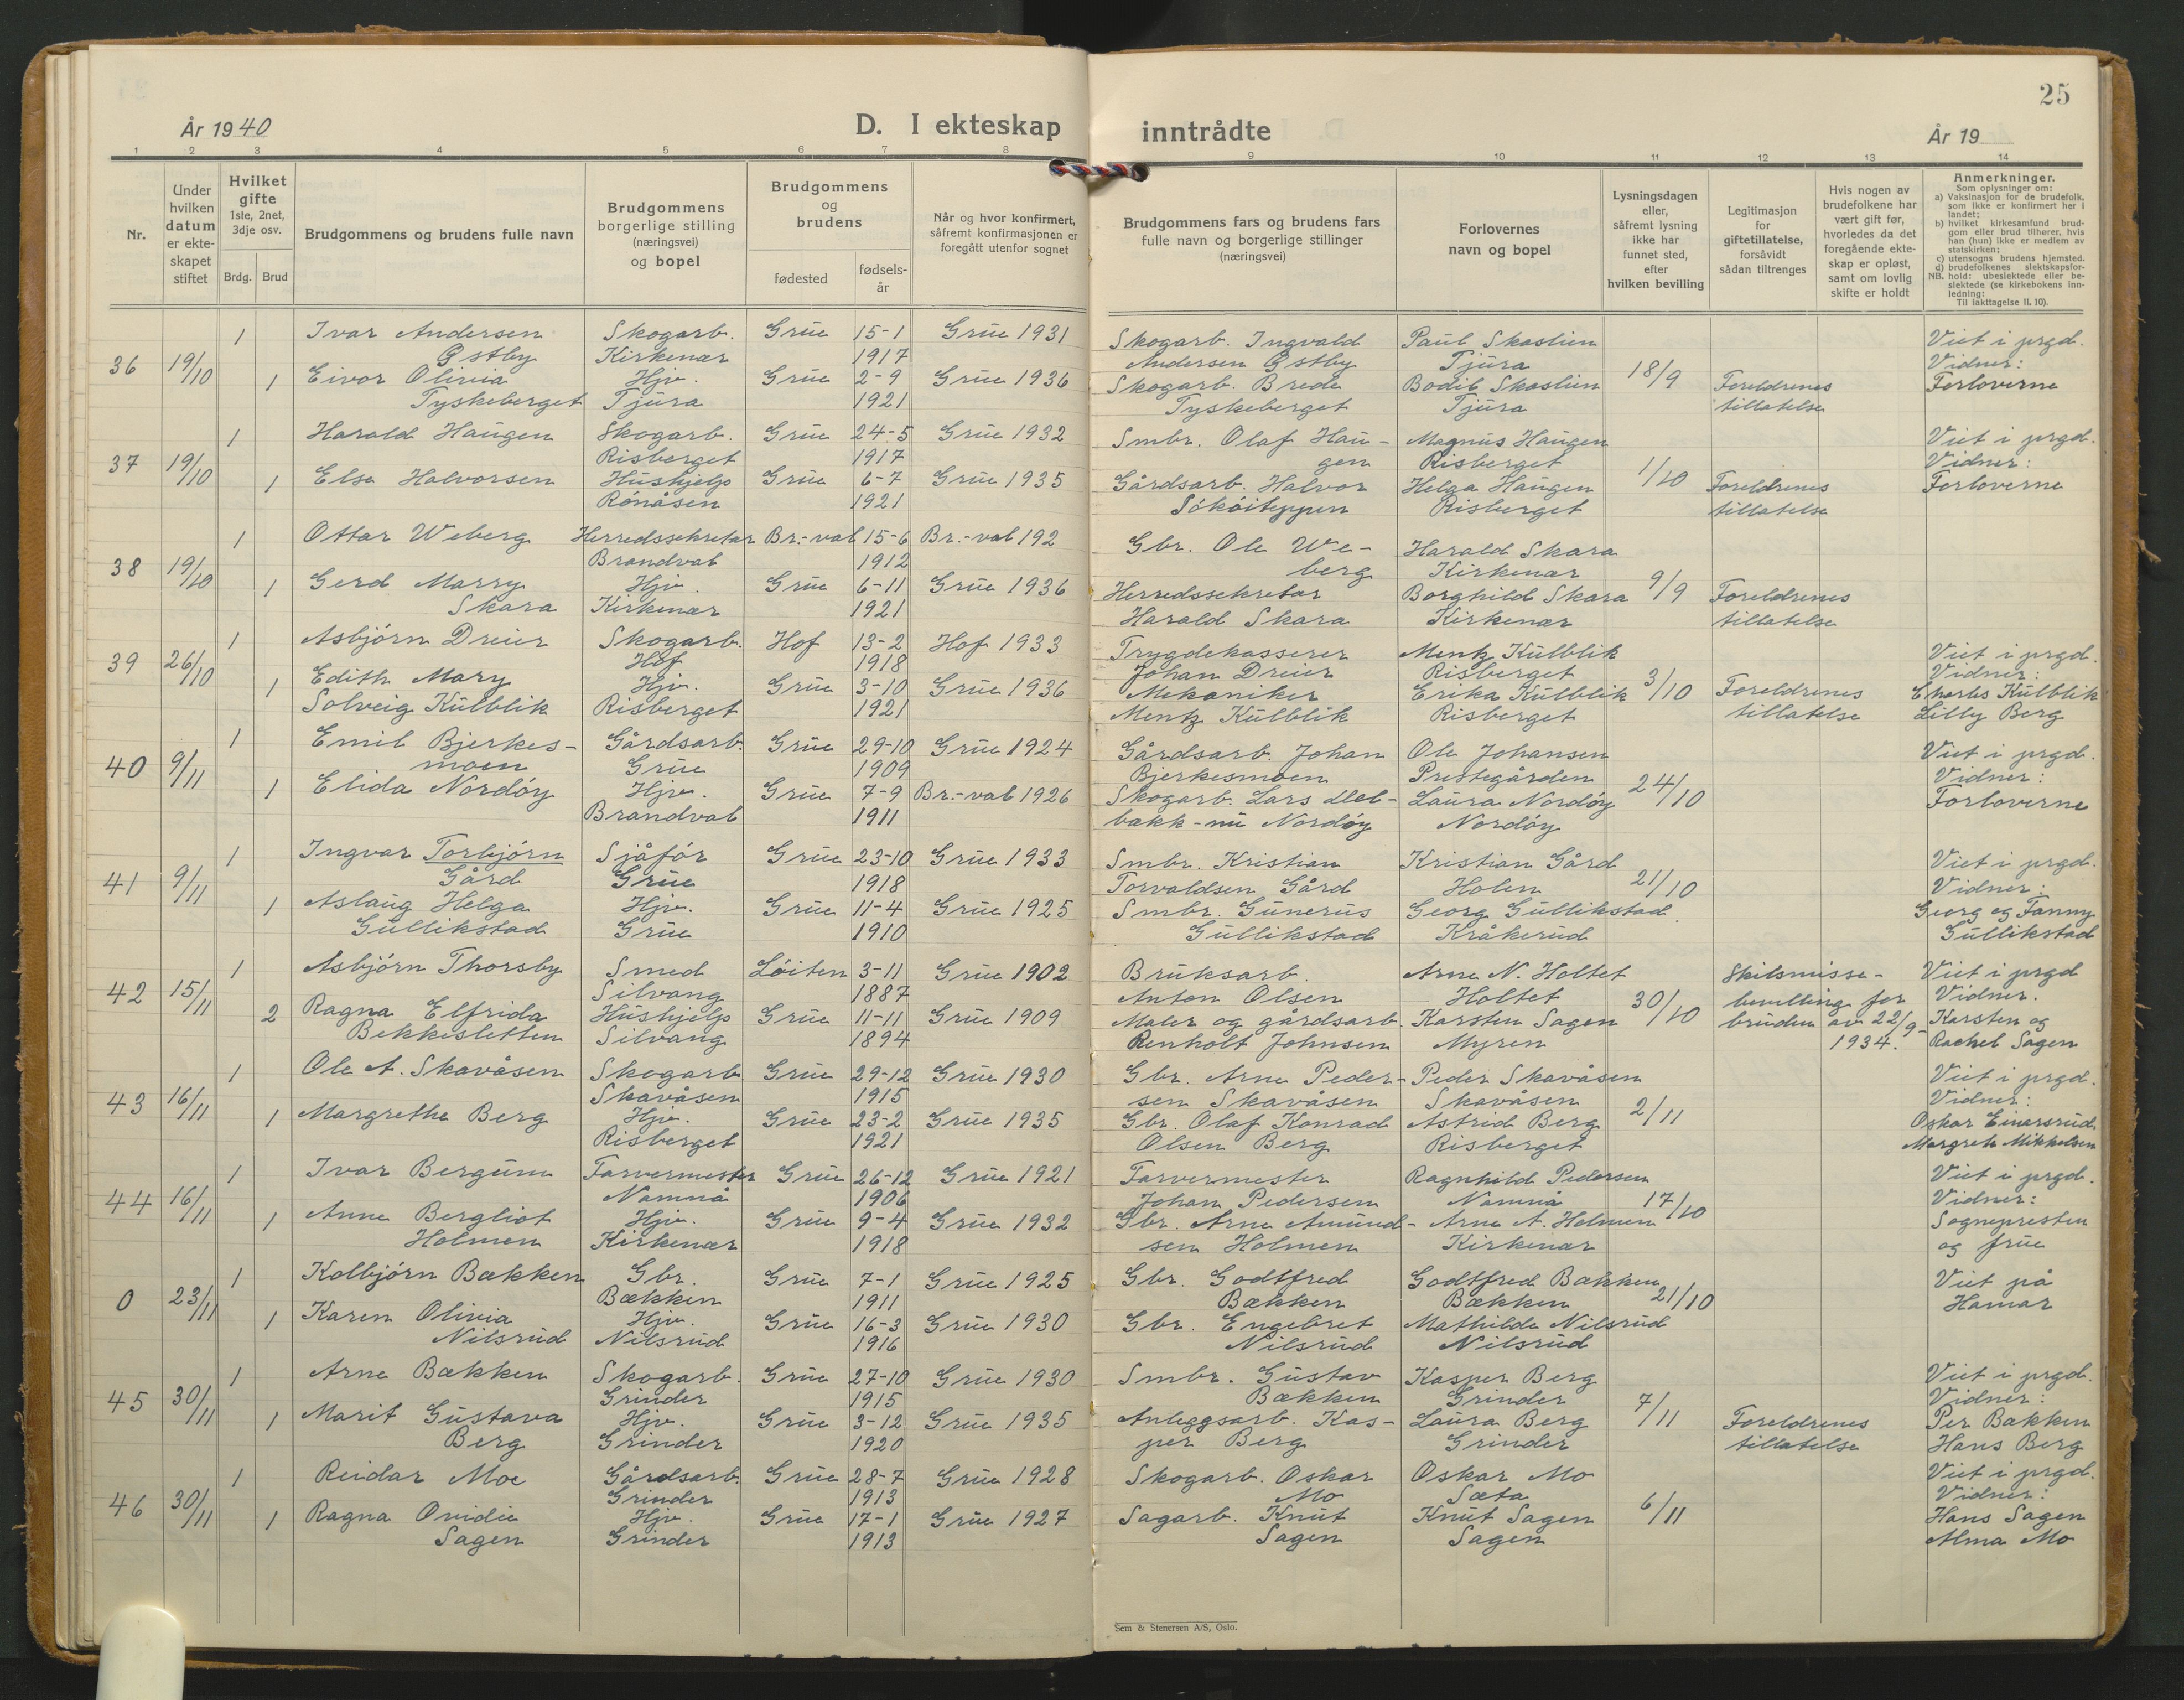 25
År 1940
D. I ekteskap inntrådte
År 19
1 2 3 4 5 6 7 8 9 10 11 12 13 14
Nr.
Under hvilken datum er ekteskapet stiftet
Hvilket gifte 1ste, 2net, 3dje osv.
Brdg. Brud
Brudgommens og brudens fulle navn
Brudgommens borgerlige stilling (næringsvei) og bopel
Brudgommens og brudens
fødested
fødselsår
Når og hvor konfirmert, såfremt konfirmasjonen er foregått utenfor sognet
Brudgommens fars og brudens fars fulle navn og borgerlige stillinger (næringsvei)
Forlovernes navn og bopel
Lysningsdagen eller, såfremt lysning ikke har funnet sted, efter hvilken bevilling
Legitimasjon for giftetillatelse, forsåvidt sådan tiltrenges
Hvis nogen av brudefolkene har vært gift før, hvorledes da det foregående ekteskap er opløst, samt om lovlig skifte er holdt
Anmerkninger.
Som oplysninger om:
a) Vaksinasjon for de brudefolk, som ikke er konfirmert her i landet;
b) hvilket kirkesamfund brudgom eller brud tilhører, hvis han (hun) ikke er medlem av statskirken;
c) utensogns brudens hjemsted.
d) brudefolkenes slektskapsforhold: ubeslektede eller beslektede (se kirkebokens innledning:
NB.
Til iakttagelse II, 10).
36 19/10
1 Ivar Andersen Skogarb. Grue 15-1 Grue 1931 Skogarb. Ingvald Paul Skaslien Viet i prgd.
Østby Kirkenær 1917 Andersen Østby Tjura 18/9 Vidner:
1 Eivor Olivia Hjv. Grue 2-9 Grue 1936 Skogarb. Brede Bodil Skaslien Foreldrenes Forloverne
Tyskeberget Tjura 1921 Tyskeberget Tjura tillatelse
37 19/10
1 Harald Haugen Skogarb. Grue 24-5 Grue 1932 Smbr. Olaf Hau- Magnus Haugen Viet i prgd.
Risberget 1917 gen Risberget 1/10 Vidner:
1 Else Halvorsen Hushjelp Grue 6-7 Grue 1935 Gårdsarb. Halvor Helga Haugen Foreldrenes Forloverne
Rönåsen 1921 Risberget tillatelse
38 19/10
1 Ottar Weberg Herredssekretær Br.-val 15-6 Br.-val 192 Gbr. Ole We- Harald Skara
Brandval 1912 berg Kirkenær 9/9
1 Gerd Marry Hjv. Grue 6-11 Grue 1936 Herredssekretær Borghild Skara Foreldrenes
Skara Kirkenær 1921 Harald Skara Kirkenær tillatelse
39 26/10
1 Asbjörn Dreier Skogarb. Hof 13-2 Hof 1933 Trygdekasserer Mentz Kulblik Viet i prgd.
Hof 1918 Johan Dreier Risberget 3/10 Vidner:
1 Edith Mary Hjv. Grue 3-10 Grue 1936 Mekaniker Erika Kulblik Foreldrenes Charles Kulblik
Solveig Kulblik Risberget 1921 Mentz Kulblik Risberget tillatelse Lilly Berg
40 9/11
1 Emil Bjerkes- Gårdsarb. Grue 29-10 Grue 1924 Gårdsarb. Johan Ole Johansen Viet i prgd.
moen Grue 1909 Bjerkesmoen Prestegården 24/10 Vidner:
1 Elida Nordöy Hjv. Grue 7-9 Br.-val 1926 Skogarb. Lars Laura Nordöy Forloverne
Brandval 1911 bakk-nu Nordöy Nordöy
41 9/11
1 Ingvar Torbjörn Sjåför Grue 23-10 Grue 1933 Smbr. Kristian Kristian Gård Viet i prgd.
Gård Grue 1918 Torvaldsen Gård Holen 21/10 Vidner:
1 Aslaug Helga Hjv. Grue 11-4 Grue 1925 Smbr. Gunerus Georg Gullikstad Georg og Fanny
Gullikstad Grue 1910 Gullikstad Kråkerud Gullikstad
42 15/11
1 Asbjörn Thorsby Smed Löiten 3-11 Grue 1902 Bruksarb. Arne N. Holtet Skilsmisse- Viet i prgd
Silvang 1887 Anton Olsen Holtet 30/10 bevilling for Vidner.
2 Ragna Elfrida Hushjelp Grue 11-11 Grue 1909 Maler og gårdsarb. Karsten Sagen bruden av 22/9- Karsten og
Bekkesletten Silvang 1894 Renholt Johnsen Myren 1934. Rachel Sagen
43 16/11
1 Ole A. Skavåsen Skogarb Grue 29-12 Grue 1930 Gbr. Arne Peder- Peder Skavåsen Viet i prgd.
Skavåsen 1915 sen Skavåsen Skavåsen 2/11 Vidner:
1 Margrethe Berg Hjv. Grue 23-2 Grue 1935 Gbr. Olaf Konrad Astrid Berg Oskar Einarsrud
Risberget 1921 Olsen Berg Risberget Margrete Mikkelsen
44 16/11
1 Ivar Bergum Farvermester Grue 26-12 Grue 1921 Farvermester Ragnhild Pedersen Viet i prgd.
Namnå 1906 Johan Pedersen Namnå 17/10 Vidner:
1 Anne Bergliot Hjv. Grue 9-4 Grue 1932 Gbr. Arne Amund- Arne A. Holmen Sognepresten
Holmen Kirkenær 1918 sen Holmen Kirkenær og frue
0 23/11
1 Kolbjörn Bækken Gbr. Grue 7-1 Grue 1925 Gbr. Godtfred Godtfred Bækken Viet på
Bækken 1911 Bækken Bækken 21/10 Hamar
1 Karen Olivia Hjv. Grue 16-3 Grue 1930 Gbr. Engebret Mathilde Nilsrud
Nilsrud Nilsrud 1916 Nilsrud Nilsrud
45 30/11
1 Arne Bækken Skogarb. Grue 27-10 Grue 1930 Smbr. Gustav Kasper Berg Viet i prgd.
Grinder 1915 Bækken Grinder 7/11 Vidner:
1 Marit Gustava Hjv. Grue 3-12 Grue 1935 Anleggsarb. Kas- Laura Berg Foreldrenes Per Bakken
Berg Grinder 1920 per Berg Grinder tillatelse Hans Berg
46 30/11
1 Reidar Moe Gårdsarb. Grue 28-7 Grue 1928 Skogarb. Oskar Oskar Mo Viet i prgd.
Grinder 1913 Mo Sæta 6/11 Vidner:
1 Ragna Ovidie Hjv. Grue 17-1 Grue 1927 Sagarb. Knut Knut Sagen Hans Sagen
Sagen Grinder 1913 Sagen Sagen Alma Mo
Sem & Stenersen A/S, Oslo.